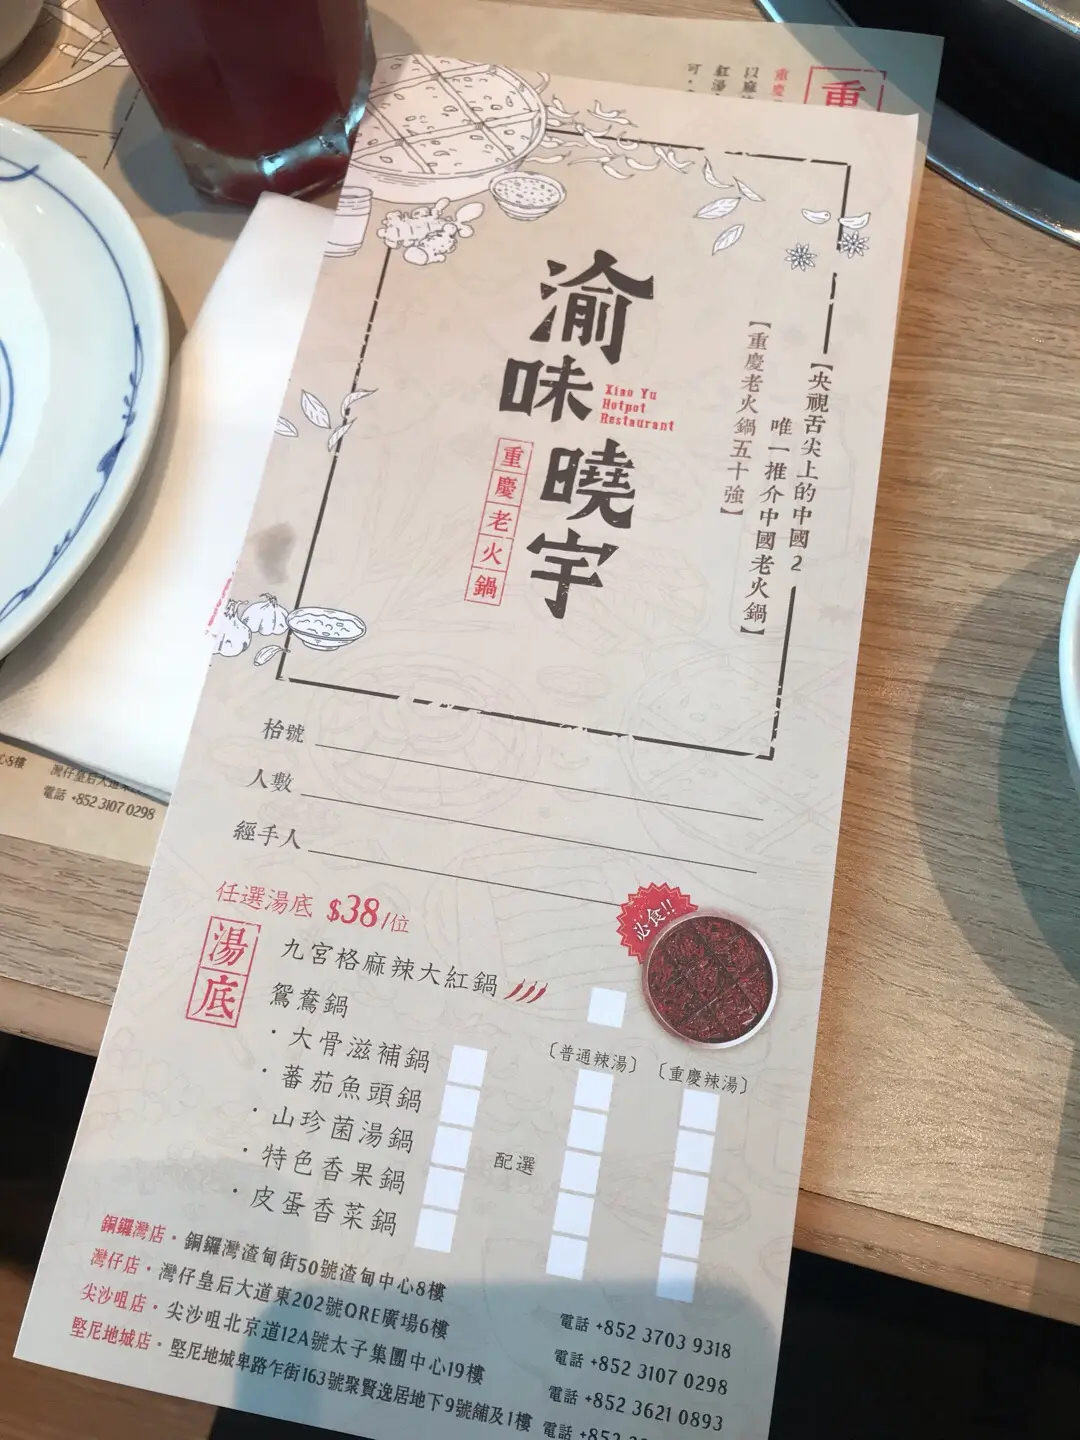 重
重慶
以麻
紅湯
可
渝味曉宇
Xiao Yu
Hotpot
Restaurant
重慶老火鍋
【央視舌尖上的中國2
唯一推介中國老火鍋】
【重慶老火鍋五十強】
枱號
人數
經手人
任選湯底 $38/位
必食!!
湯底
九宮格麻辣大紅鍋
鴛鴦鍋
〔普通辣湯〕 〔重慶辣湯〕
・大骨滋補鍋
・蕃茄魚頭鍋
・山珍菌湯鍋
・特色香果鍋
・皮蛋香菜鍋
配選
銅鑼灣店・銅鑼灣渣甸街50號渣甸中心8樓 電話 +852 3703 9318
灣仔店・灣仔皇后大道東202號QRE廣場6樓 電話 +852 3107 0298
尖沙咀店・尖沙咀北京道12A號太子集團中心19樓 電話 +852 3621 0893
堅尼地城店・堅尼地城卑路乍街163號聚賢逸居地下9號舖及1樓 電話 +852
心5樓
灣仔皇后大道東
電話 +852 3107 0298